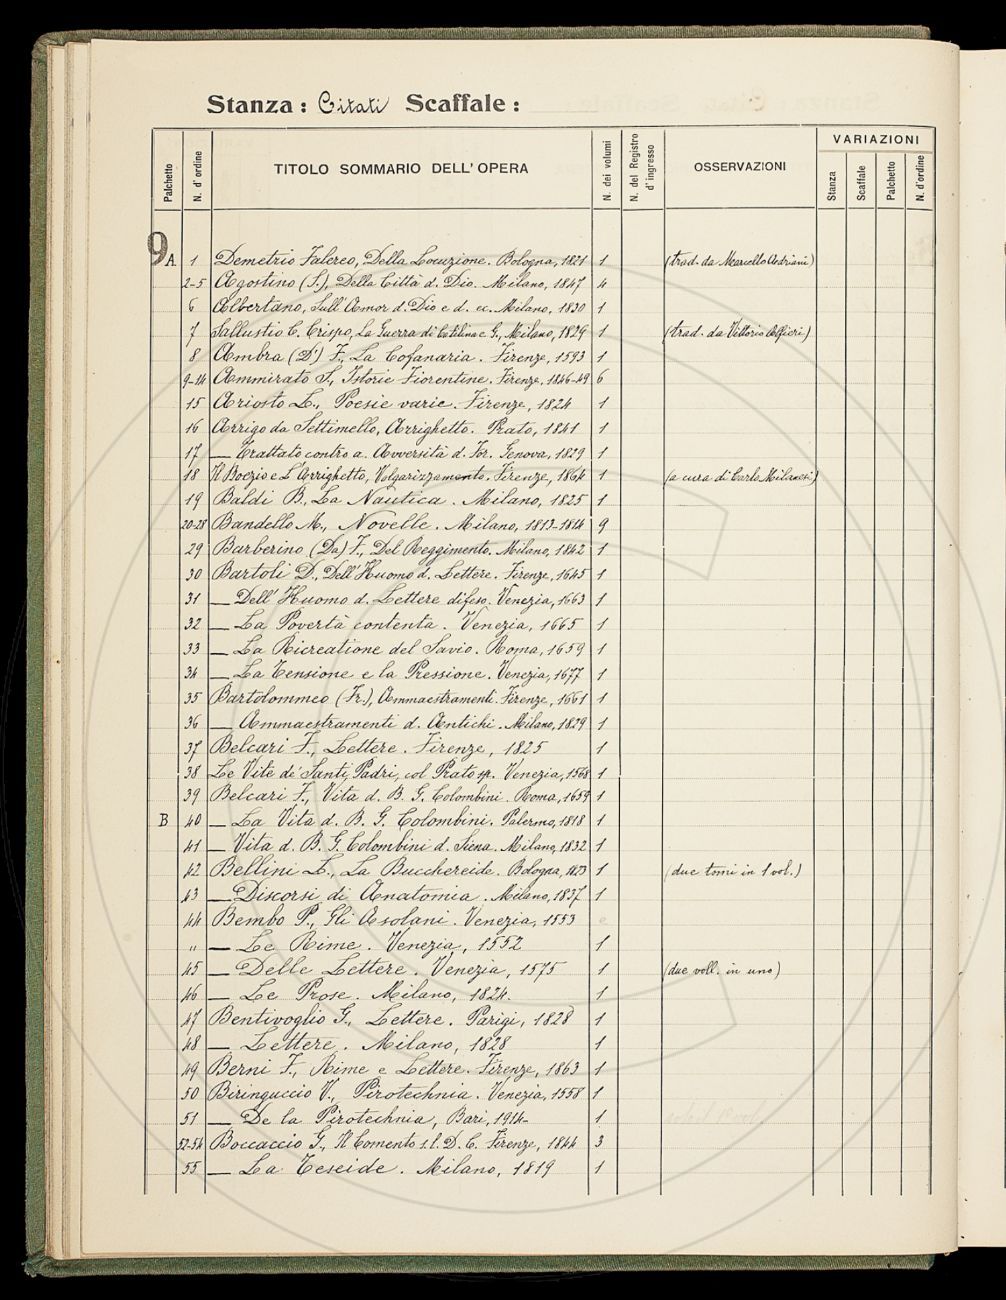 Stanza: Citati Scaffale:
Palchetto N. d'ordine TITOLO SOMMARIO DELL'OPERA N. dei volumi N. del Registro d'ingresso OSSERVAZIONI VARIAZIONI
Stanza Scaffale Palchetto N. d'ordine
9A 1 Demetrio Falereo, Della Locuzione. Bologna, 1821 1 (trad. da Marcello Adriani)
2-5 Agostino (S.), Della Città d. Dio. Milano, 1847 4
6 Albertano, Sull'Amor d. Dio e d. ec. Milano, 1830 1
7 Sallustio C. Crispo, La Guerra di Catilina e G., Milano, 1829 1 (trad. da Vittorio Alfieri)
8 Ambra (D') F., La Cofanaria. Firenze, 1593 1
9-14 Ammirato S., Istorie Fiorentine. Firenze, 1846-49 6
15 Ariosto L., Poesie varie. Firenze, 1824 1
16 Arrigo da Settimello, Arrighetto. Prato, 1841 1
17 — Trattato contro a. Avversità d. For. Genova, 1829 1
18 Il Boezio e L'Arrighetto, Volgarizzamento. Firenze, 1864 1 (a cura di Carlo Milanesi)
19 Baldi B., La Nautica. Milano, 1825 1
20-28 Bandello M., Novelle. Milano, 1813-1814 9
29 Barberino (Da) F., Del Reggimento. Milano, 1842 1
30 Bartoli D., Dell'Huomo d. Lettere. Firenze, 1645 1
31 — Dell'Huomo d. Lettere difeso. Venezia, 1663 1
32 — La Povertà contenta. Venezia, 1665 1
33 — La Ricreatione del Savio. Roma, 1659 1
34 — La Tensione e la Pressione. Venezia, 1677 1
35 Bartolommeo (Fr.), Ammaestramenti. Firenze, 1661 1
36 — Ammaestramenti d. Antichi. Milano, 1829 1
37 Belcari F., Lettere. Firenze, 1825 1
38 Le Vite de' Santi Padri, col Prato sp. Venezia, 1568 1
39 Belcari F., Vita d. B. G. Colombini. Roma, 1659 1
B 40 — La Vita d. B. G. Colombini. Palermo, 1818 1
41 — Vita d. B. G. Colombini d. Siena. Milano, 1832 1
42 Bellini L., La Bucchereide. Bologna, 1823 1 (due tomi in 1 vol.)
43 — Discorsi di Anatomia. Milano, 1837 1
44 Bembo P., Gli Asolani. Venezia, 1553
" — Le Rime. Venezia, 1552 1
45 — Delle Lettere. Venezia, 1575 1 (due voll. in uno)
46 — Le Prose. Milano, 1824. 1
47 Bentivoglio G., Lettere. Parigi, 1828 1
48 — Lettere. Milano, 1828 1
49 Berni F., Rime e Lettere. Firenze, 1863 1
50 Biringuccio V., Pirotechnia. Venezia, 1558 1
51 — De la Pirotechnia, Bari, 1914- 1
52-54 Boccaccio G., Il Comento s. l. D. C. Firenze, 1844 3
55 — La Teseide. Milano, 1819 1